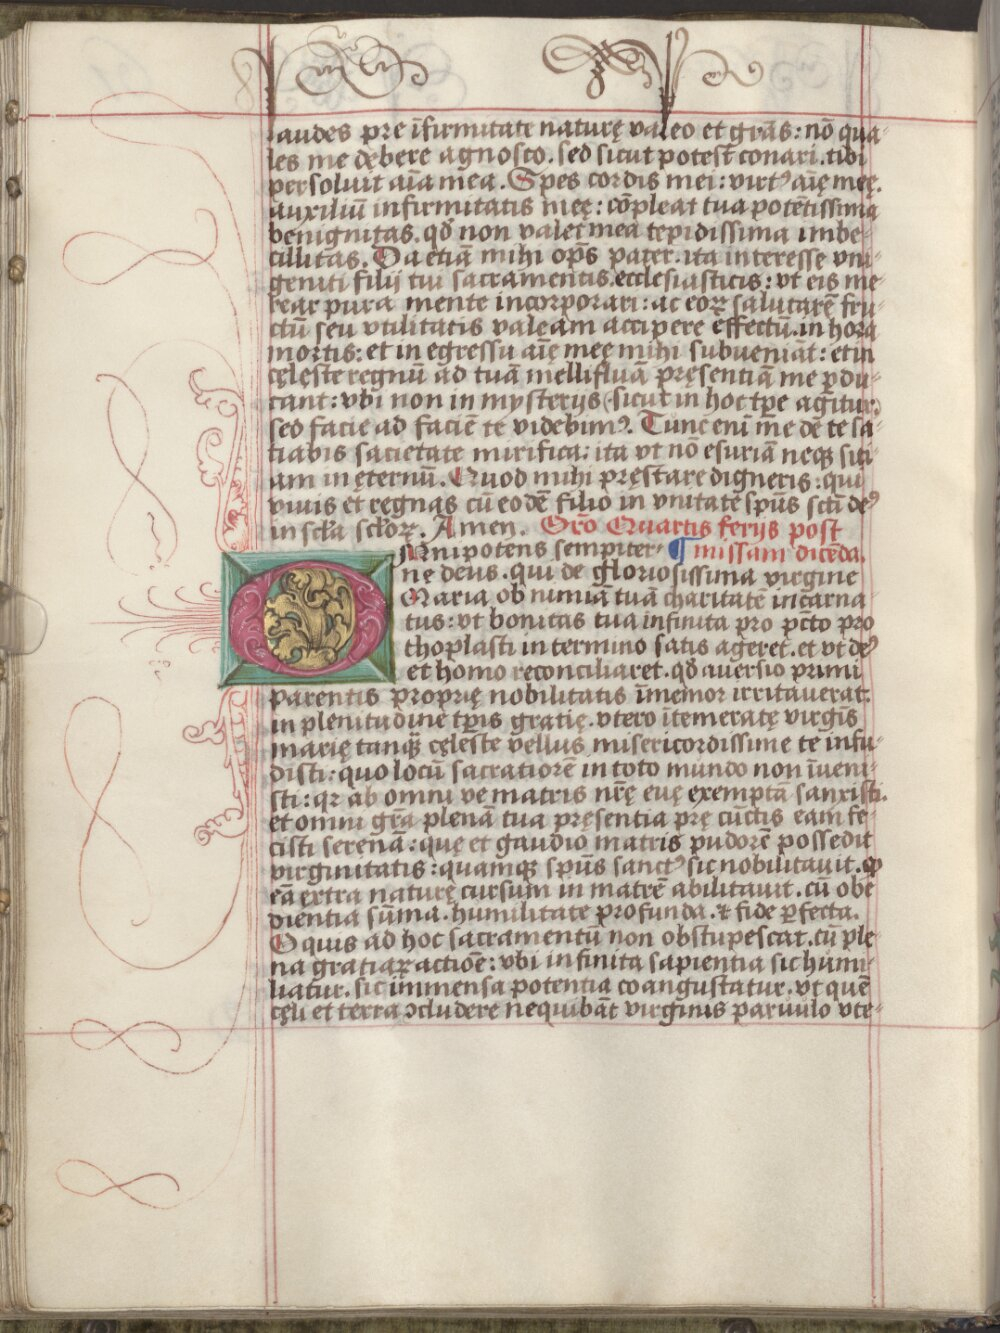 laudes prę īfirmitate naturę valeo et grās: nō qua-
les me dębere agnosco. sed sicut potest conari. tibi
persoluit aīa mea. Spes cordis mei: virtꝰ aīę meę.
auxiliū infirmitatis meę: cōpleat tua potētissima
benignitas. qđ non valet mea tepidissima imbe-
cillitas. Da etiā mihi oꝑs pater. ita interesse vni-
geniti filij tui sacramentis ecclesiasticis: vt eis me-
rear pura mente incorporari: ac eoꝝ salutarē fru-
ctū seu vtilitatis valeam accipere effectū. in hora
mortis: et in egressu aīę meę mihi subueniāt: et in
cęleste regnū ad tuā mellifluā pręsentiā me ꝑdu-
cant: vbi non in mysterijs (sicut in hoc tꝑe agitur)
sed facie ad faciē te videbimꝰ. Tunc enī me de te sa-
tiabis sacietate mirifica: ita vt nō esuriā neqꝫ siti-
am in ęternū. Quod mihi pręstare digneris: qui
viuis et regnas cū eodē filio in vnitate spūs scti deꝰ
in scła scłoꝝ. Amen. Oro Quartis ferijs post
Mnipotens sempiter- ¶ missam dicēda.
ne deus. qui de gloriosissima virgine
Maria ob nimiā tuā charitatē incarna
tus: vt bonitas tua infinita pro pcto pro
thoplasti in termino satis ageret. et vt deꝰ
et homo reconciliaret. qđ auersio primi
parentis proprię nobilitatis īmemor irritauerat.
in plenitudine tꝑis gratię. vtero ītemeratę virgīs
marię tanqꝫ cęleste vellus misericordissime te infu-
disti: quo locū sacratiorē in toto mundo non īueni-
sti: qꝛ ab omni ve matris nrę euę exemptā sanxisti.
et omni grā plenā tua pręsentia prę cūctis eam fe-
cisti serenā: quę et gaudio matris pudorē possedit
virginitatis: quamqꝫ spūs sanctꝰ sic nobilitauit. ꝙ
eā extra naturę cursum in matrē abilitauit. cū obe
dientia sūma. humilitate profunda. & fide ꝑfecta.
O quis ad hoc sacramentū non obstupescat. cū ple-
na gratiaꝝ actiōe: vbi infinita sapientia sic humi-
liatur. sic immensa potentia coangustatur. vt quē
cęli et terra ↄcludere nequibāt virginis paruulo vte-